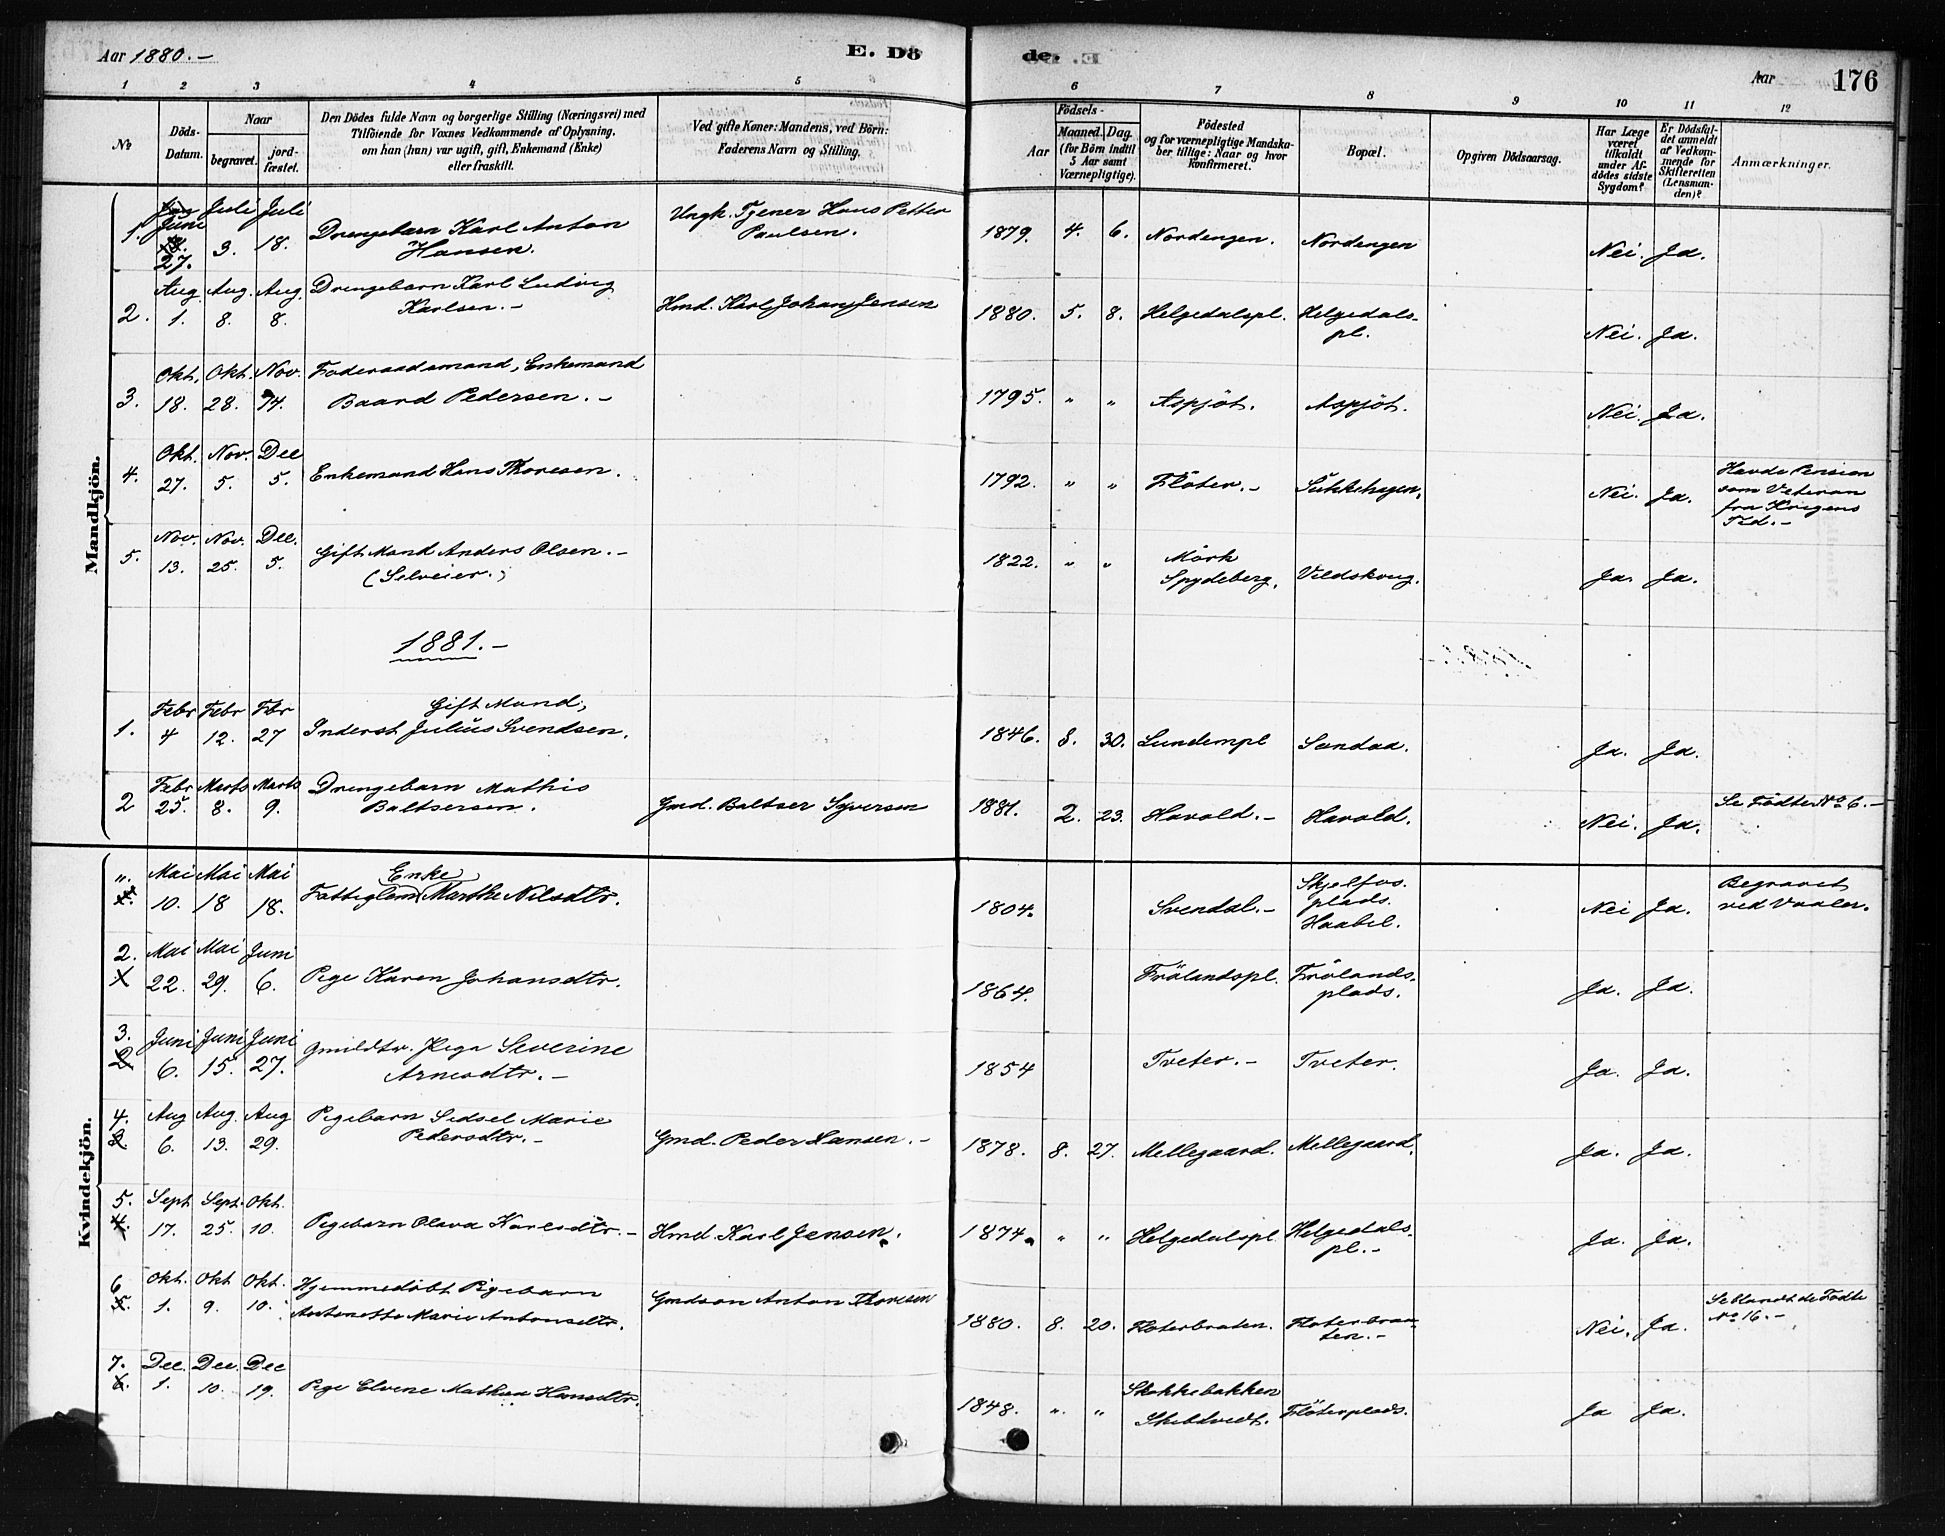 Aar 1880.-
E. Dö
de.
Aar
176
1 2 3 4 5 6 7 8 9 10 11 12
No
Döds-Datum.
Naar
begravet.
jord-fæstet.
Den Dödes fulde Navn og borgerlige Stilling (Næringsvei) med
Tilföiende for Voxnes Vedkommende af Oplysning,
om han (hun) var ugift, gift, Enkemand (Enke)
eller fraskilt.
Ved gifte Koner: Mandens, ved Börn:
Faderens Navn og Stilling.
Födsels-
Aar
Maaned.
Dag.
(for Börn indtil
5 Aar samt
Værnepligtige).
Födested
og for værnepligtige Mandska-
ber tillige: Naar og hvor
konfirmeret.
Bopæl.
Opgiven Dödsaarsag.
Har Læge
været
tilkaldt
under Af-
dödes sidste
Sygdom?
Er Dödsfal-
det anmeldt
af Vedkom-
mende for
Skifteretten
(Lensman-
den)?
Anmærkninger.
Mandkjön.
1. Juni 27. Juli 3. Juli 18. Drengebarn Karl Anton
Hansen.
Ungk. Tjener Hans Petter
Paulsen.
1879. 4. 6. Nordengen. Nordengen Nei. Ja.
2. Aug. 1. Aug. 8. Aug. 8. Drengebarn Karl Ludvig
Karlsen.-
Hmd. Karl Johan Jensen
1880. 5. 8. Helgedalspl. Helgedals-
pl. Nei. Ja.
3. Okt. 18. Okt. 28. Nov. 14. Foderaadsmand, Enkemand
Baard Pedersen.-
1795. " " Aspjöt. Aspjöt. Nei. Ja.
4. Okt. 27. Nov. 5. Dec 5. Enkemand Hans Thoresen.
1792. " " Flöter.- Sukkehagen. Nei. Ja.
Havde Pension
som Veteran
fra Krigens
Tid.-
5. Nov. 13. Nov. 25. Dec. 5. Gift Mand Anders Olsen.-
(Selveier.)
1822. " " Mörk
Spydeberg. Vildskoug. Ja. Ja.
1881.-
1. Febr 4 Febr 12. Fbr 27 Gift Mand,
Inderst Julius Svendsen.
1846. 8. 30. Lundempl Sandaa. Ja. Ja.
2 Febr 25. Marts 8. Marts 9. Drengebarn Mathis
Baltsersen.
Gmd. Baltser Syversen
1881. 2. 23. Harald.- Harald. Nei. Ja.
Se Födte No 6.-
Kvindekjön.
Mai 10. Mai 18 Mai 18. Enke
Fattiglem Marthe Nilsdtr.
1804. Svendal.- Skjelfos-
plads.
Haabel. Nei Ja.
Begravet
ved Vaaler.
2. Mai 22. Mai 29. Juni 6. Pige Karen Johansdtr.
1864. Frölandspl. Frölands-
plads. Ja. Ja.
3. Juni 6. Juni 15. Juni 27. Gmddtr. Pige Severine
Arnesdtr.-
1854 Tveter.- Tveter. Ja. Ja.
4. Aug 6. Aug. 13. Aug 29. Pigebarn Sidsel Marie
Pedersdtr.-
Gmd. Peder Hansen.-
1878. 8. 27. Mellegaard. Mellegaard. Ja. Ja.
5. Sept 17. Sept. 25. Okt. 10. Pigebarn Olava Karlsdtr.-
Hmd. Karl Jensen.
1874. " " Helgedalspl Helgedals-
pl.- Ja. Ja.
6 Okt. 1. Okt 9. Okt. 10. Hjemmedöbt Pigebarn
Antonette Marie Antonsdtr.
Gmdsön Anton Thoresen
1880. 8. 20. Flöterbraten. Flöterbraa-
ten.- Nei. Ja.
Se blandt de Födte
No 16.-
7. Dec. 1. Dec. 10. Dec 19. Pige Elvine Mathea Hansdtr.
1848. " " Stokkebakken
Skibtvedt. Flöterplads. Ja Ja.